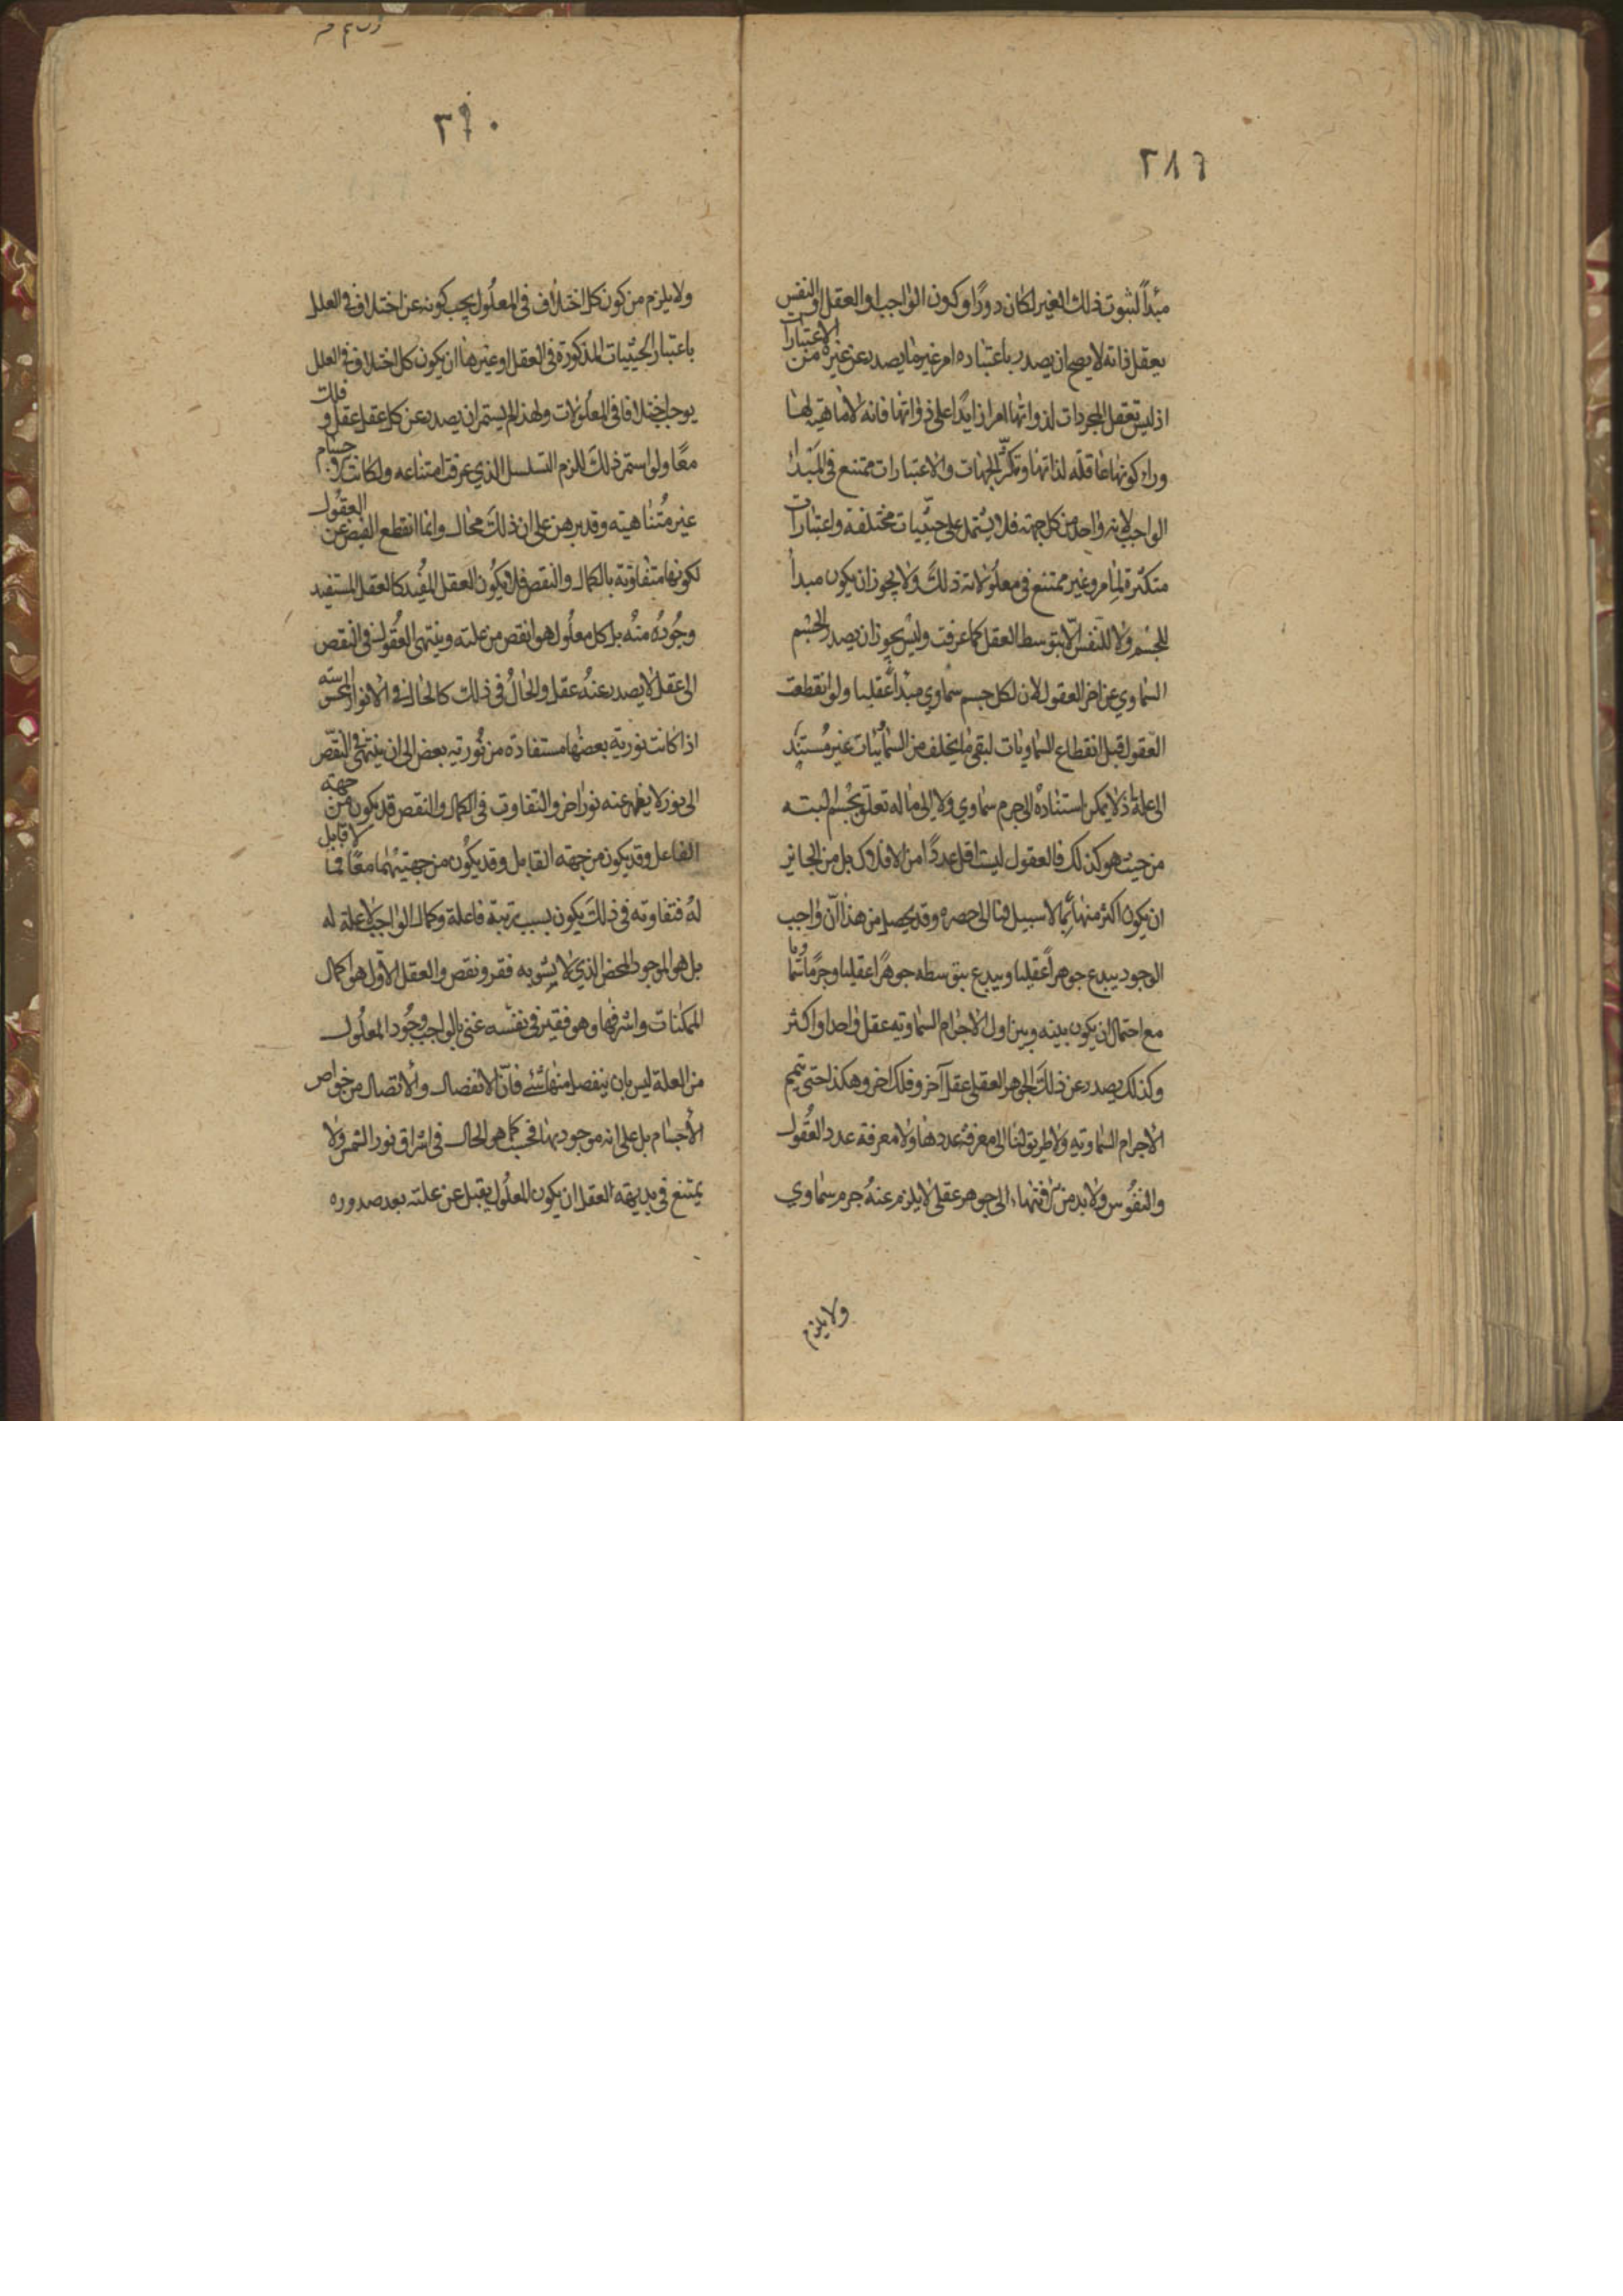 ٣٨٩
مبدأ لثبوت ذلك الغير لكان دورًا وكون الواجب او العقل او النفس
يعقل ذاته لا يصح ان يصدر باعتباره امر غير ما يصدر عن غيره من الاعتبارات
اذ ليس تعقل المجردات لذواتها امرا زايدًا على ذواتها فانه لا ماهية لها
وراء كونها عاقلة لذاتها وتكثر الجهات والاعتبارات ممتنع فى المبدأ
الواجب لانه واحد من كل جهة فلا يشتمل على حيثيات مختلفة واعتبارات
متكثرة لما مر وغير ممتنع فى معلولاته ذلك ولا يجوز ان يكون مبدأ
للجسم ولا للنفس الا بتوسط العقل كما عرفت وليس يجوز ان يصدر الجسم
السماوي عن اخر العقول لان لكل جسم سماوي مبدأ عقليا ولو انقطعت
العقول قبل انقطاع السماويات لبقى ما يتخلف من السمائيات غير مستند
الى علة اذ لا يمكن استناده الى جرم سماوي ولا الى ما له تعلق بجسم البته
من حيث هو كذلك فالعقول ليست اقل عددًا من الافلاك بل من الجايز
ان يكون اكثر منها بما لا سبيل لنا الى حصره وقد يحصل من هذا ان واجب
الوجود يبدع جوهرا عقليا ويبدع بتوسطه جوهرًا عقليا وجرمًا سماويا
مع احتمال ان يكون بينه وبين اول الاجرام السماوية عقل واحد او اكثر
وكذلك يصدر عن ذلك الجوهر العقلى عقل آخر وفلك اخر وهكذا حتى تتم
الاجرام السماوية ولا طريق لنا الى معرفة عددها ولا معرفة عدد العقول
والنفوس ولا بد من انتهاء الى جوهر عقلى لا يلزم عنه جرم سماوي
ولا يلزم
٣٩٠
ولا يلزم من كون كل اختلاف فى المعلول يجب كونه عن اختلاف فى العلل
باعتبار الحيثيات المذكورة فى العقل او غيرها ان يكون كل اختلاف فى العلل
يوجب اختلافا فى المعلولات ولهذا لم يستمر ان يصدر عن كل عقل عقل و فلك
معًا ولو استمر ذلك للزم التسلسل الذي عرفت امتناعه ولكانت الاجسام
غير متناهية وقد برهن على ان ذلك محال وانما انقطع الفيض عن العقول
لكونها متفاوتة بالكمال والنقص فلا يكون العقل المفيد كالعقل المستفيد
وجوده منه بل كل معلول هو انقص من علته وينتهى العقول فى النقص
الى عقل لا يصدر عنه عقل والحال فى ذلك كالحال فى الانوار المحسوسة
اذا كانت نورية بعضها مستفادة من نورية بعض الى ان ينتهى فى النقص
الى نور لا يظهر عنه نور اخر والتفاوت فى الكمال والنقص قد يكون من جهة
الفاعل وقد يكون من جهة القابل وقد يكون من جهتيهما معًا فما لا قابل
له فتفاوته فى ذلك يكون بسبب رتبة فاعلة وكمال الواجب لا علة له
بل هو الموجود المحض الذي لا يشوبه فقر ونقص والعقل الاول هو اكمال
الممكنات واشرفها وهو فقير فى نفسه غنى بالواجب وجود المعلول
من العلة ليس بان ينفصل منها شئ فان الانفصال والاتصال من خواص
الأجسام بل على انه موجود بها فحسب كما هو الحال فى اشراق نور الشمس ولا
يمتنع فى بديهة العقل ان يكون المعلول يقبل عن علته بعد صدوره